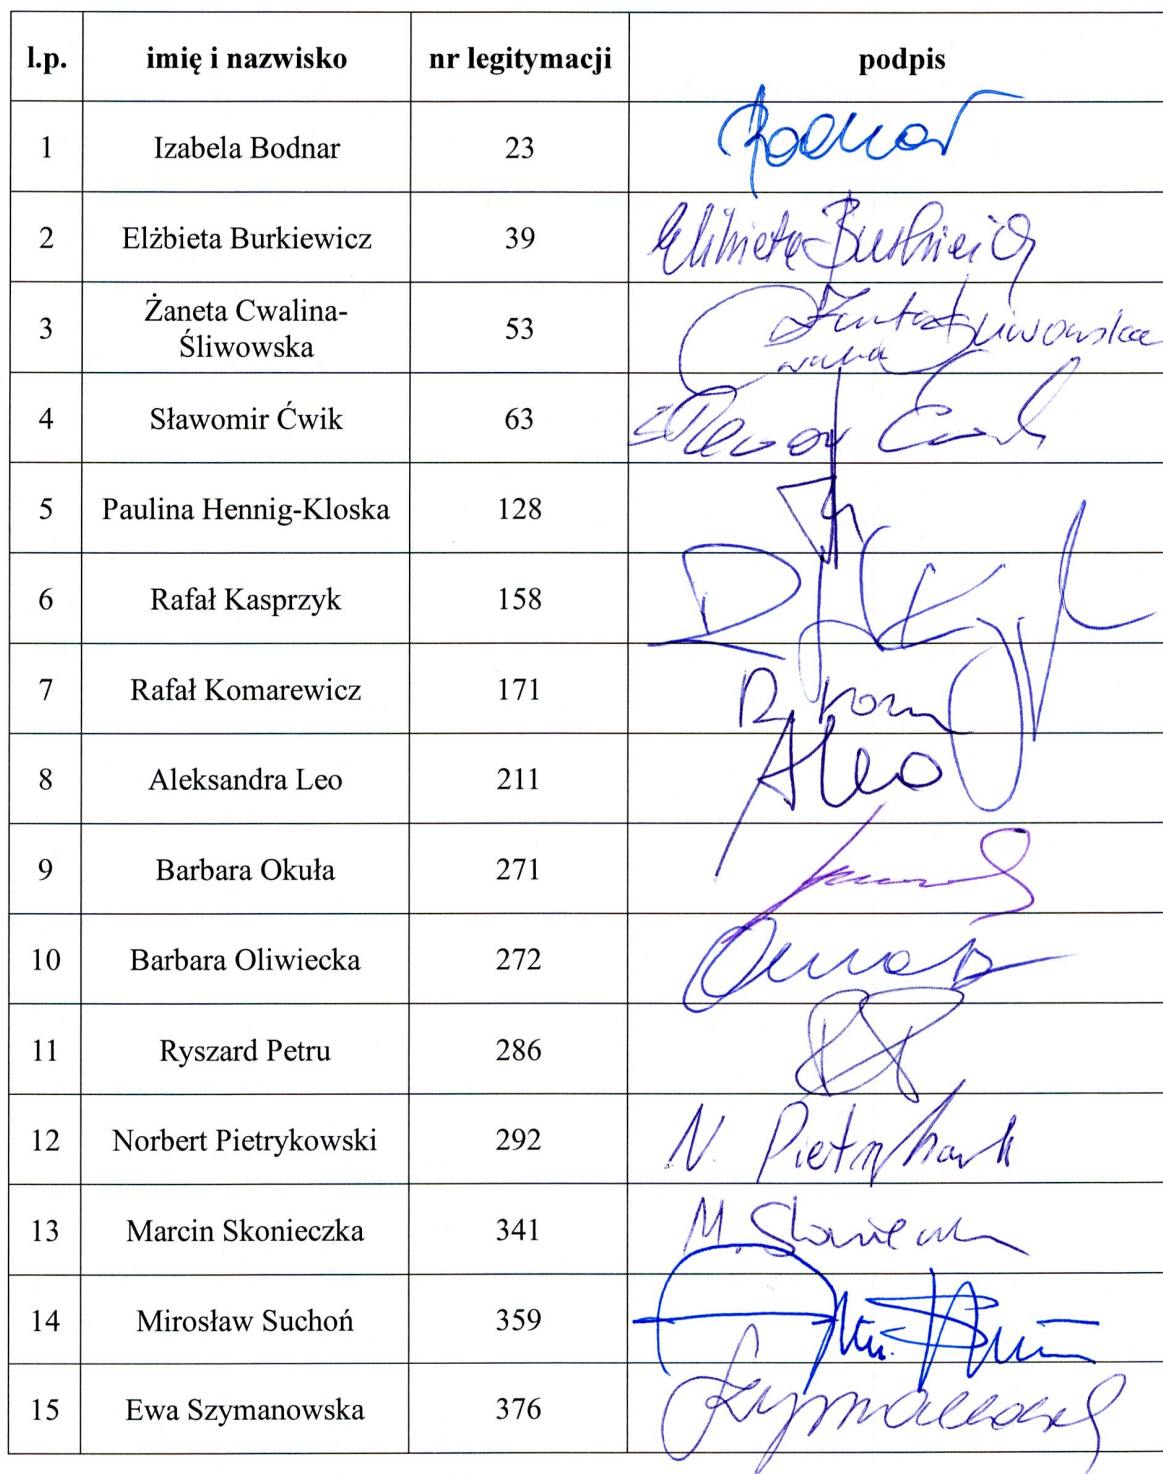 l.p. imię i nazwisko nr legitymacji podpis
1 Izabela Bodnar 23 Bodnar
2 Elżbieta Burkiewicz 39 Elżbieta Burkiewicz
3 Żaneta Cwalina-
Śliwowska 53 Śliwowska
4 Sławomir Ćwik 63
5 Paulina Hennig-Kloska 128
6 Rafał Kasprzyk 158
7 Rafał Komarewicz 171 R. Kom
8 Aleksandra Leo 211 ALeo
9 Barbara Okuła 271
10 Barbara Oliwiecka 272
11 Ryszard Petru 286 RP
12 Norbert Pietrykowski 292 N. Pietrykowsk
13 Marcin Skonieczka 341 M.
14 Mirosław Suchoń 359
15 Ewa Szymanowska 376